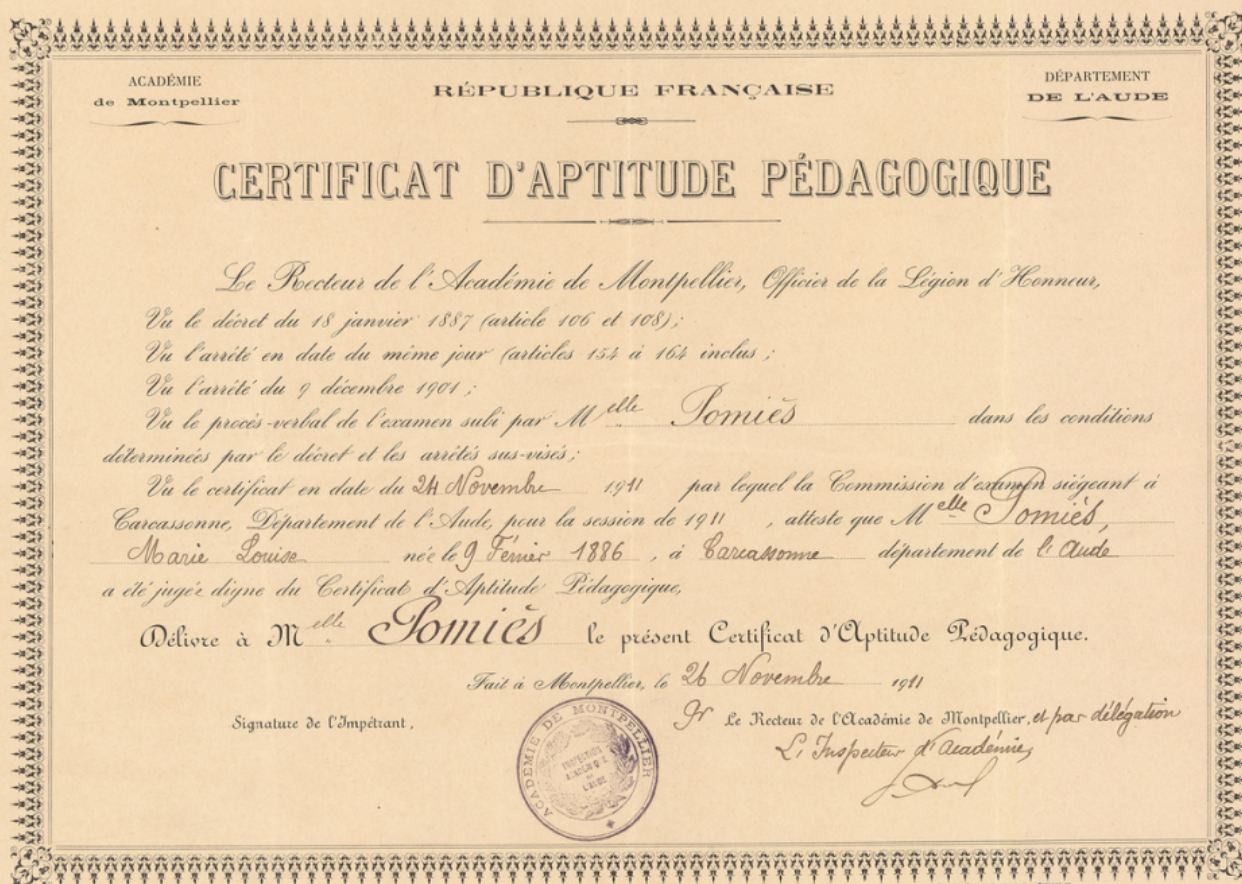 ACADÉMIE
de Montpellier
RÉPUBLIQUE FRANÇAISE
DÉPARTEMENT
DE L'AUDE
CERTIFICAT D'APTITUDE PÉDAGOGIQUE
Le Recteur de l'Académie de Montpellier, Officier de la Légion d'Honneur,
Vu le décret du 18 janvier 1887 (article 106 et 108);
Vu l'arrêté en date du même jour (articles 154 à 164 inclus ;
Vu l'arrêté du 9 décembre 1901 ;
Vu le procès-verbal de l'examen subi par Melle Pomiès dans les conditions
déterminées par le décret et les arrêtés sus-visés ;
Vu le certificat en date du 24 Novembre 1911 par lequel la Commission d'examen siégeant à
Carcassonne, Département de l'Aude, pour la session de 1911, atteste que Melle Pomiès,
Marie Louise née le 9 Février 1886, à Carcassonne département de l'Aude
a été jugée digne du Certificat d'Aptitude Pédagogique,
Délivre à Melle Pomiès le présent Certificat d'Aptitude Pédagogique.
Fait à Montpellier, le 26 Novembre 1911
Signature de l'Impétrant,
Pr Le Recteur de l'Académie de Montpellier, et par délégation
L'Inspecteur d'Académie,
ACADÉMIE DE MONTPELLIER
INSPECTION
ACADÉMIQUE
DE
L'AUDE